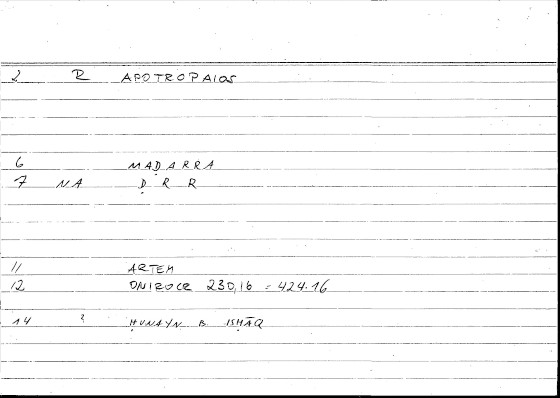 2 R APOTROPAIOS
6 MAḌARRA
7 NA Ḍ R R
11 ARTEM
12 ONIROCR 230,16 = 424.16
14 ? ḤUNAYN B ISḤĀQ